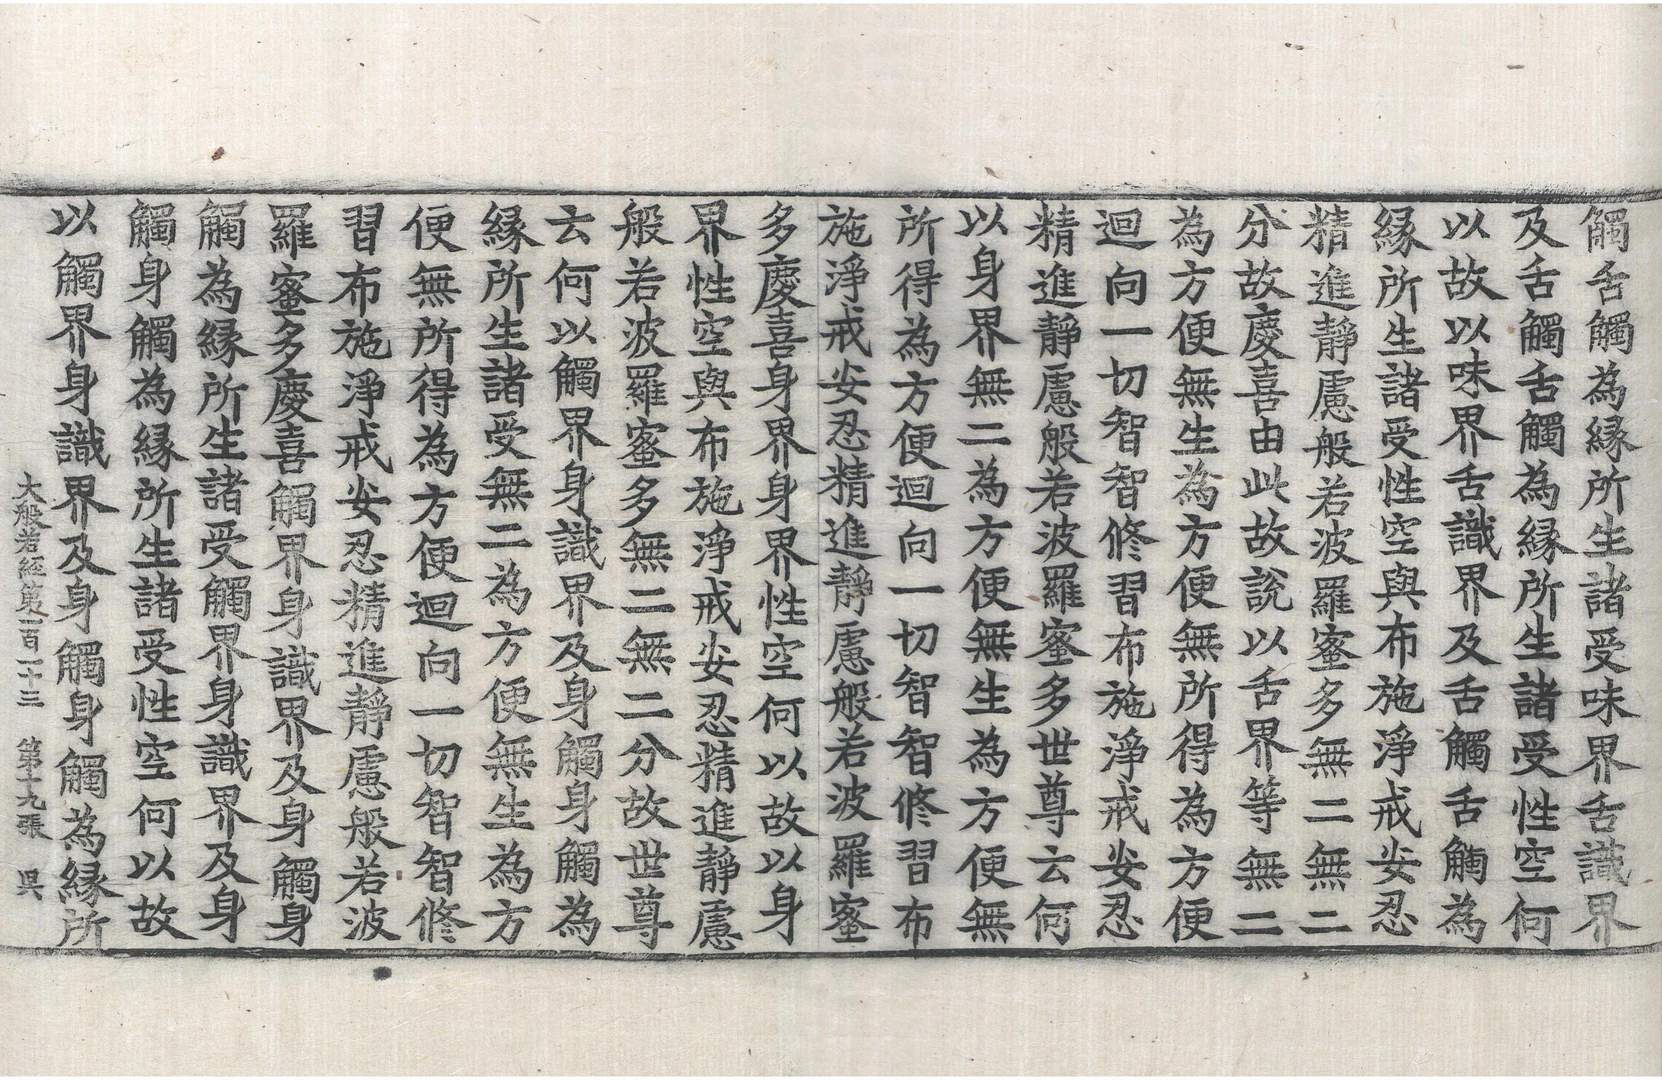 觸舌觸為縁所生諸受味界舌識界
及舌觸舌觸為縁所生諸受性空何
以故以味界舌識界及舌觸舌觸為
縁所生諸受性空與布施淨戒安忍
精進靜慮般若波羅蜜多無二無二
分故慶喜由此故說以舌界等無二
為方便無生為方便無所得為方便
迴向一切智智修習布施淨戒安忍
精進靜慮般若波羅蜜多世尊云何
以身界無二為方便無生為方便無
所得為方便迴向一切智智修習布
施淨戒安忍精進靜慮般若波羅蜜
多慶喜身界身界性空何以故以身
界性空與布施淨戒安忍精進靜慮
般若波羅蜜多無二無二分故世尊
云何以觸界身識界及身觸身觸為
縁所生諸受無二為方便無生為方
便無所得為方便迴向一切智智修
習布施淨戒安忍精進靜慮般若波
羅蜜多慶喜觸界身識界及身觸身
觸為縁所生諸受觸界身識界及身
觸身觸為縁所生諸受性空何以故
以觸界身識界及身觸身觸為縁所
大般若經第一百一十三 第十九張 昃